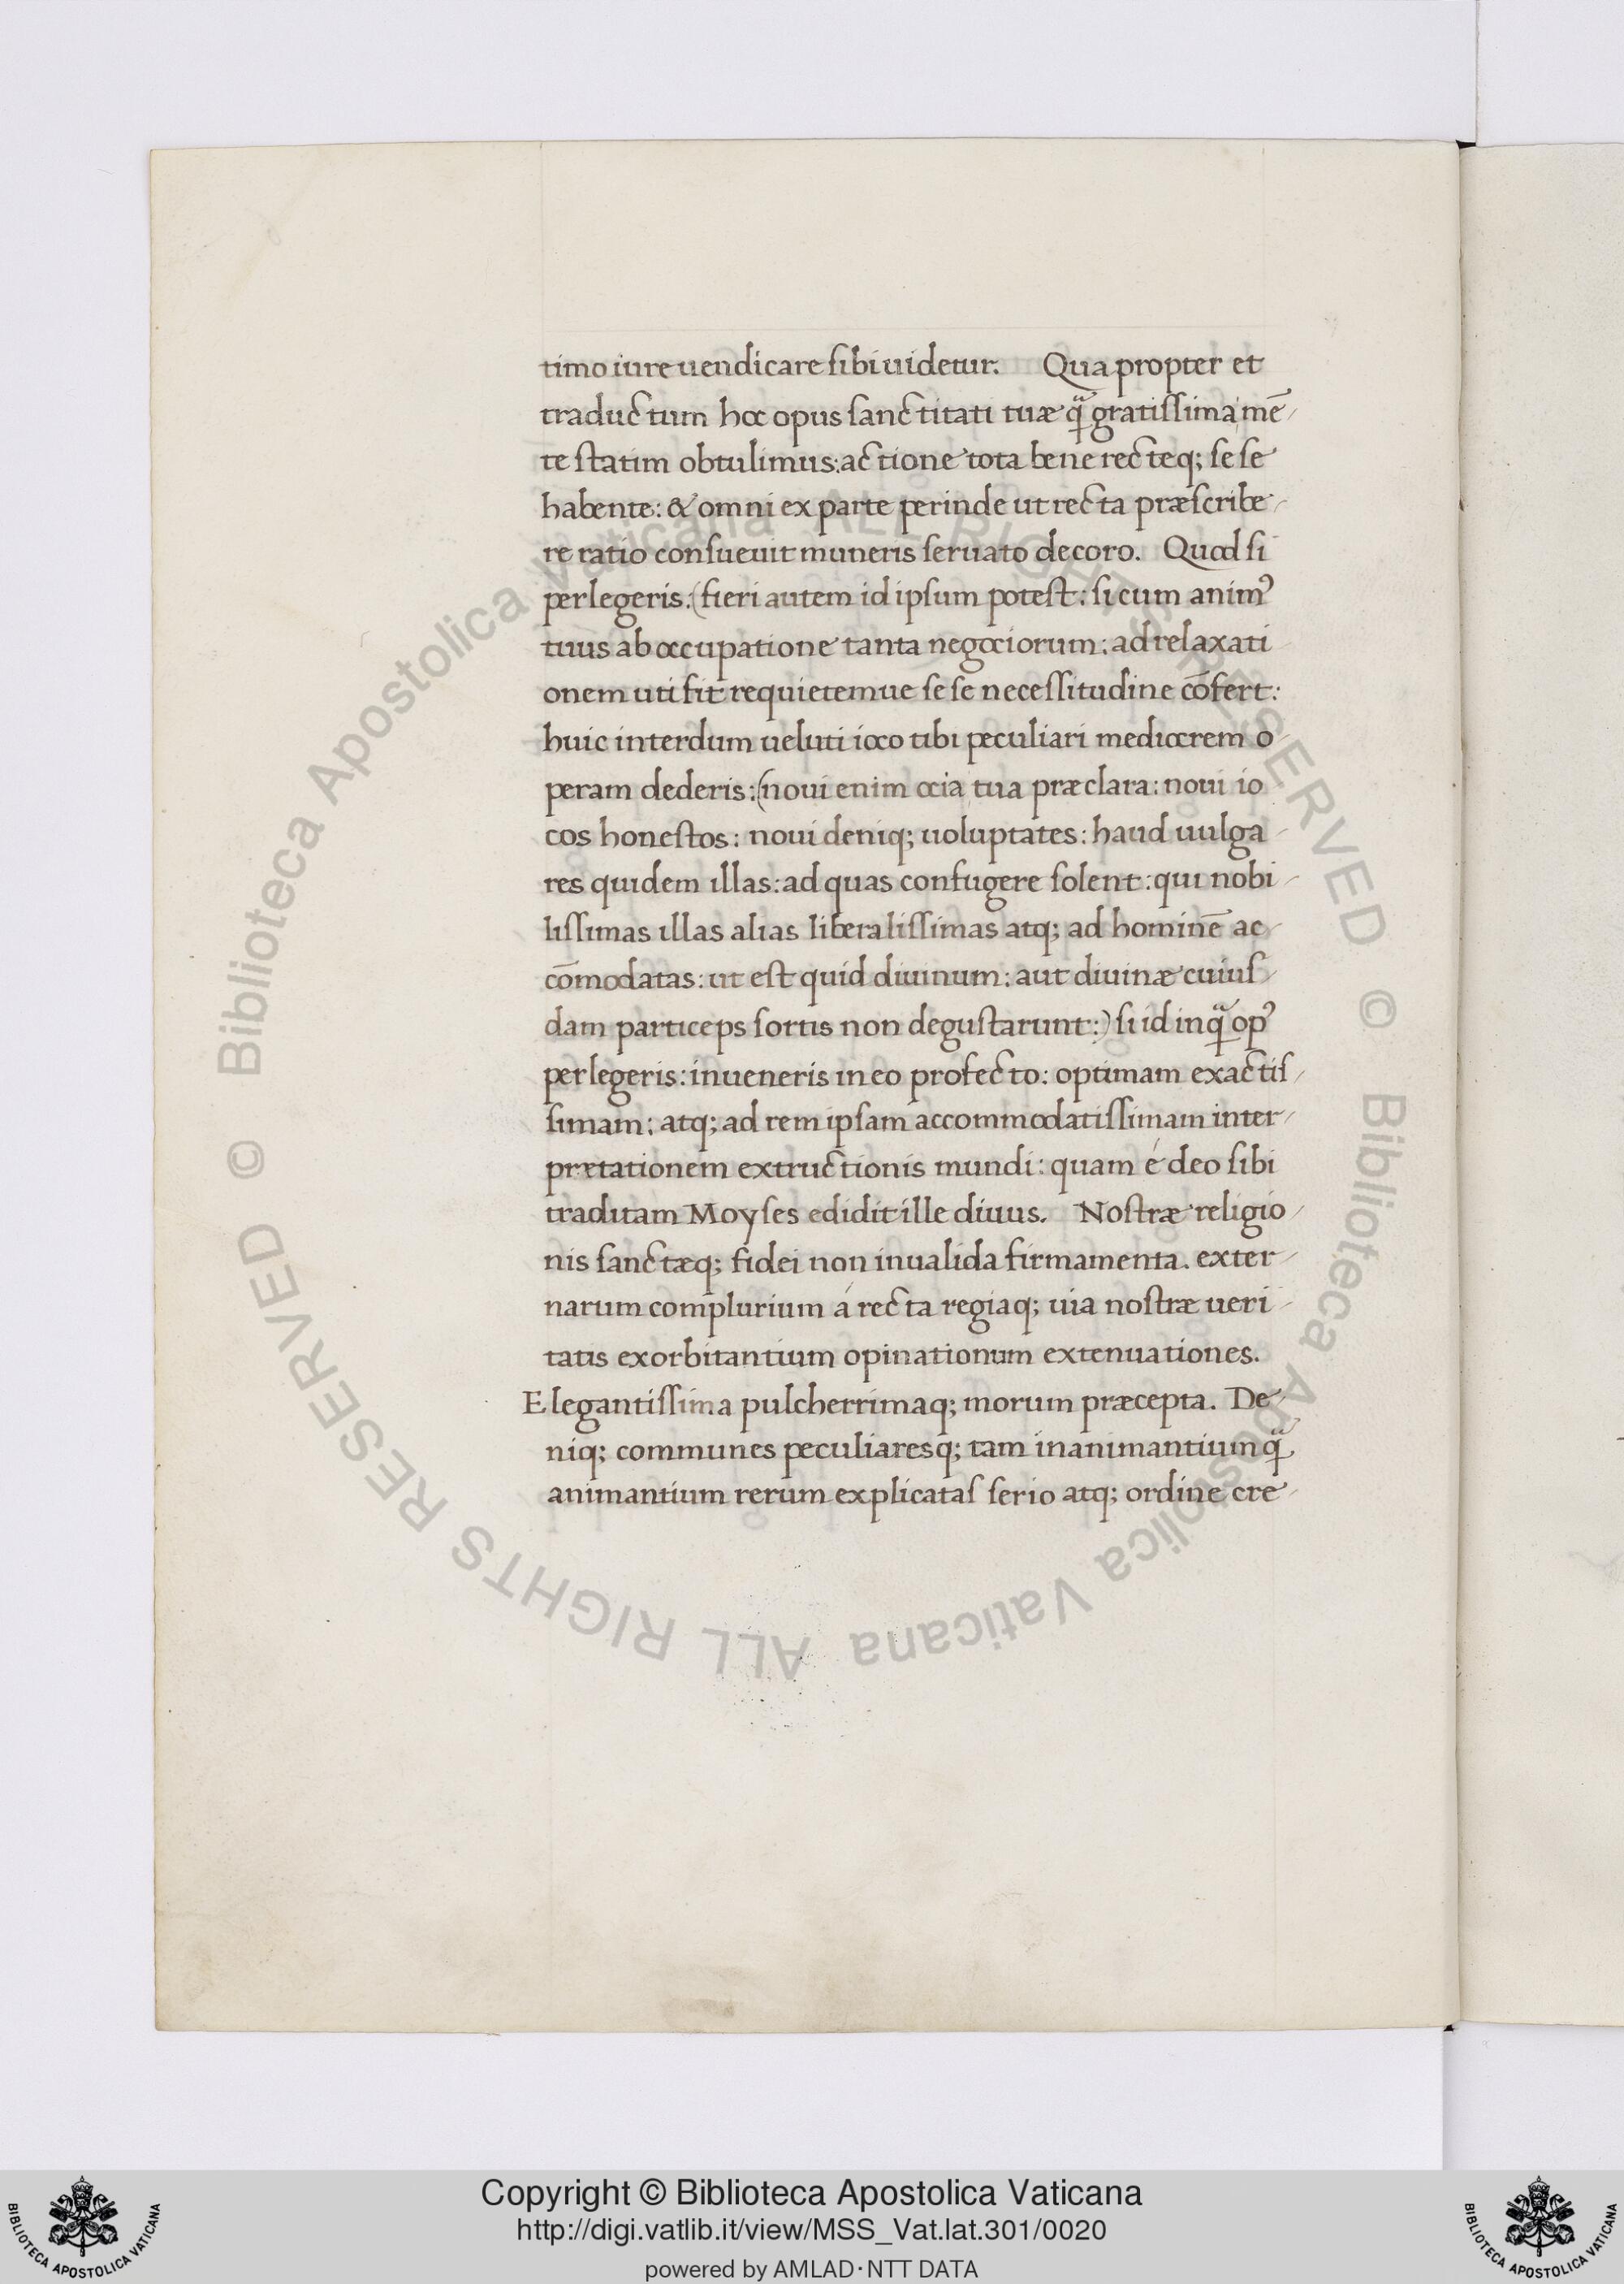 timo iure uendicare ſibi uidetur. Qua propter et
traductum hoc opus ſanctitati tuæ q̃ gratiſſima mē
te ſtatim obtulimus: actione tota bene recteq; ſe ſe
habente: & omni ex parte perinde ut recta præſcribe
re ratio conſueuit muneris ſeruato decoro. Quod ſi
perlegeris: (fieri autem id ipſum poteſt: ſi cum animꝰ
tuus ab occupatione tanta negociorum: ad relaxati
onem uti fit requietemue ſe ſe neceſſitudine cōfert:
huic interdum ueluti ioco tibi peculiari mediocrem o
peram dederis: (noui enim ocia tua præclara: noui io
cos honeſtos: noui deniq; uoluptates: haud uulga
res quidem illas: ad quas confugere ſolent: qui nobi
liſſimas illas alias liberaliſſimas atq; ad hominē ac
cōmodatas: ut eſt quid diuinum: aut diuinæ cuiuſ
dam particeps ſortis non deguſtarunt:) ſi id inq̃ opꝰ
perlegeris: inueneris in eo profecto: optimam exactiſ
ſimam: atq; ad rem ipſam accommodatiſſimam inter
prætationem extructionis mundi: quam é deo ſibi
traditam Moyſes edidit ille diuus. Noſtræ religio
nis ſanctæq; fidei non inualida firmamenta. exter
narum complurium á recta regiaq; uia noſtræ ueri
tatis exorbitantium opinationum extenuationes.
Elegantiſſima pulcherrimaq; morum præcepta. De
niq; communes peculiaresq; tam inanimantium q̃
animantium rerum explicataſ ſerio atq; ordine cre
© Biblioteca Apostolica Vaticana ALL RIGHTS RESERVED
© Biblioteca Apostolica Vaticana ALL RIGHTS RESERVED
Copyright © Biblioteca Apostolica Vaticana
http://digi.vatlib.it/view/MSS_Vat.lat.301/0020
powered by AMLAD·NTT DATA
BIBLIOTECA APOSTOLICA VATICANA
BIBLIOTECA APOSTOLICA VATICANA